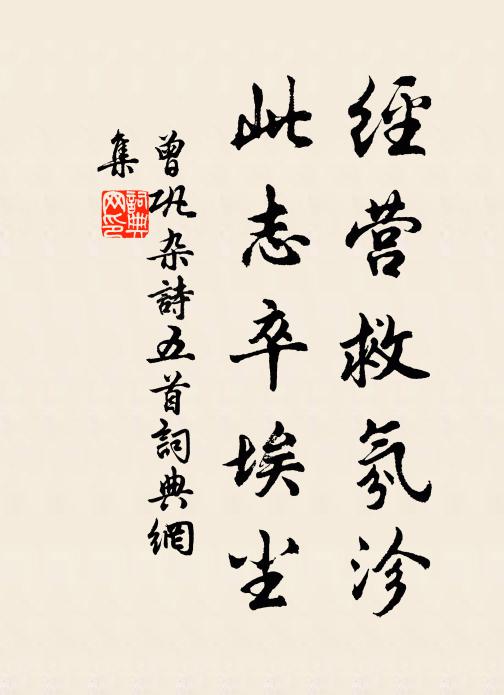 經营救氛沴
此志卒埃尘
曾巩杂詩五首詞典網
集
詞典网印